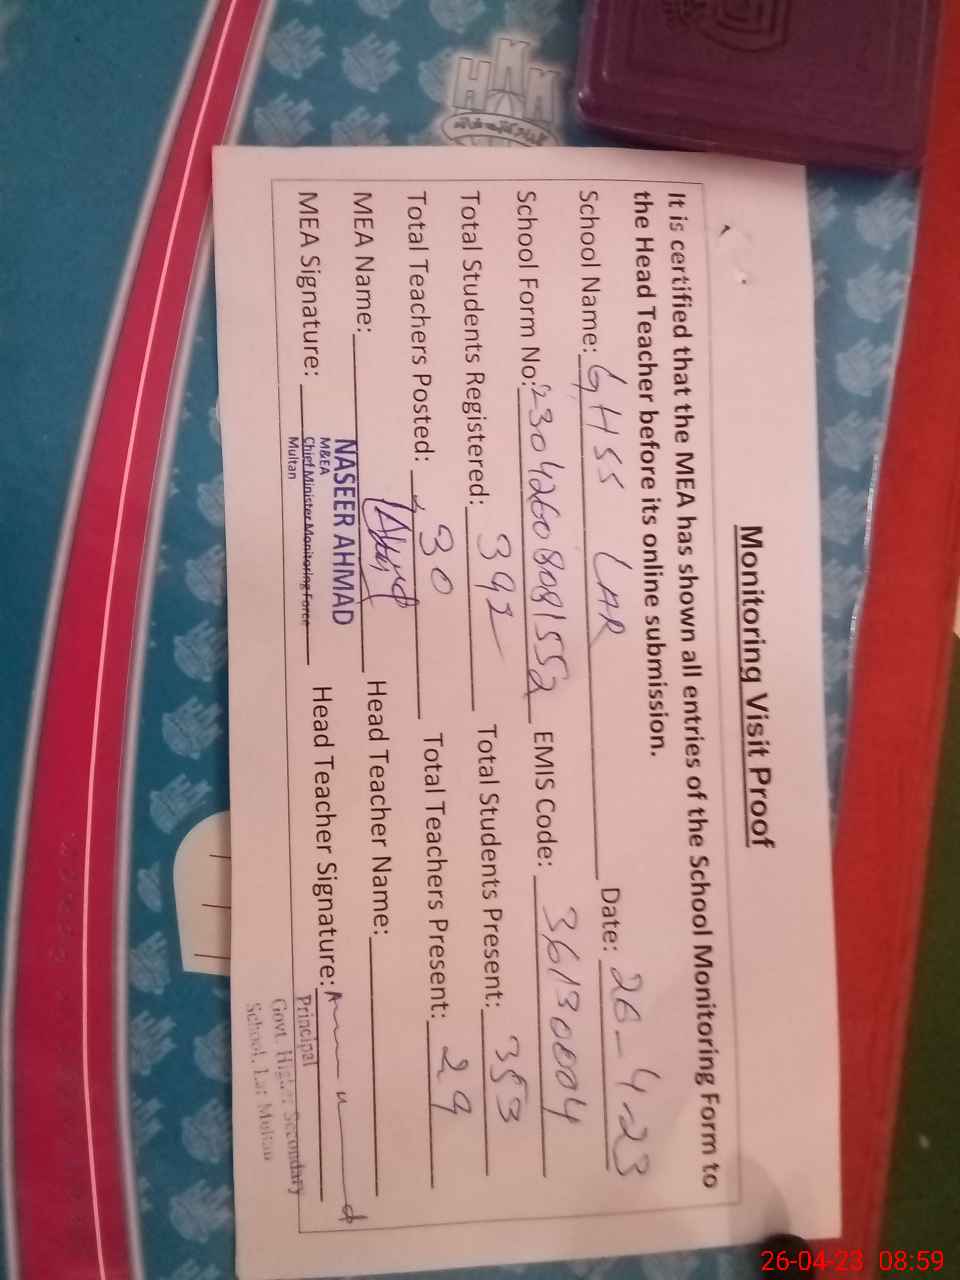 Monitoring Visit Proof
It is certified that the MEA has shown all entries of the School Monitoring Form to
the Head Teacher before its online submission.
School Name: GHSS LAR Date: 26-4-23
School Form No: 23042608081552 EMIS Code: 36130004
Total Students Registered: 392 Total Students Present: 353
Total Teachers Posted: 30 Total Teachers Present: 29
MEA Name: Head Teacher Name:
NASEER AHMAD
MEA Signature: Head Teacher Signature:
M&EA
Chief Minister Monitoring Force
Multan
Principal
Govt. Higher Secondary
School, Lar Multan
26-04-23 08:59